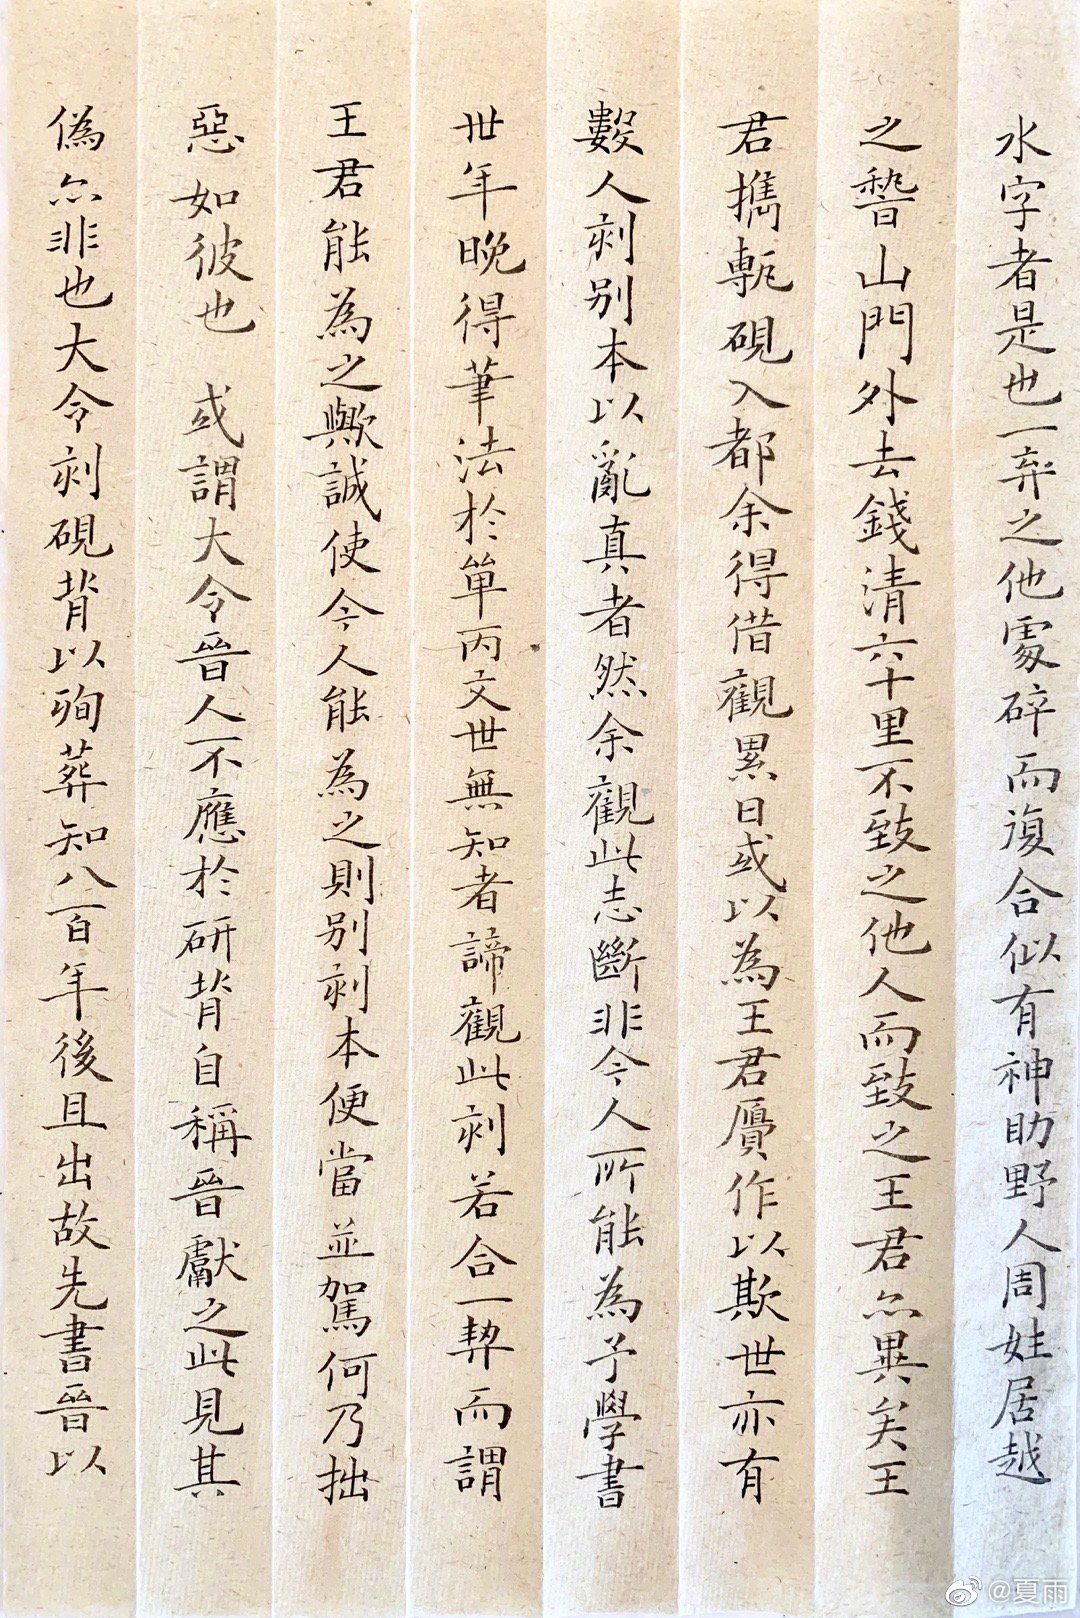 水字者是也一弃之他處碎而復合似有神助野人周姓居越
之稽山門外去錢清六十里不致之他人而致之王君亦異矣王
君攜甎硯入都余得借觀累日或以為王君贋作以欺世亦有
數人刻别本以亂真者然余觀此志斷非今人所能為予學書
丗年晚得筆法於單丙文世無知者諦觀此刻若合一契而謂
王君能為之歟誠使今人能為之則别刻本便當並駕何乃拙
惡如彼也 或謂大令晉人不應於研背自稱晉獻之此見其
偽亦非也大令刻硯背以殉葬知八百年後且出故先書晉以
@夏雨